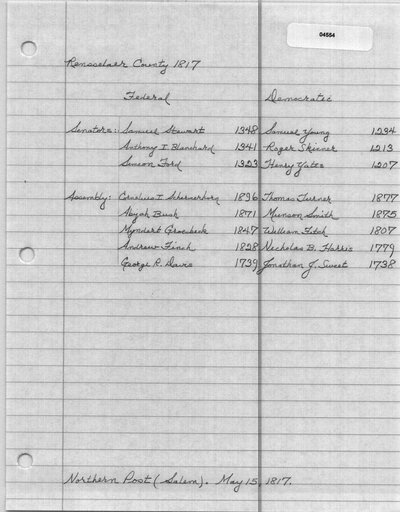 04554
Rensselaer County 1817
Federal Democratic
Senators: Samuel Stewart 1348 Samuel Young 1294
Anthony I Blanchard 1341 Roger Skinner 1213
Simeon Ford 1323 Henry Yates 1207
Assembly: Cornelius I Schermerhorn 1896 Thomas Turner 1877
Abijah Bush 1871 Munson Smith 1875
Myndert Groesbeck 1847 William Fitch 1807
Andrew Finch 1828 Nicholas B. Harris 1779
George R. Davis 1739 Jonathan J. Sweet 1738
Northern Post (Salem). May 15, 1817.